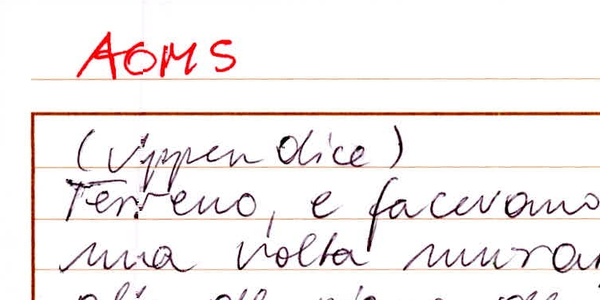 AOMS
(Appendice)
Terreno, e facevano
una volta